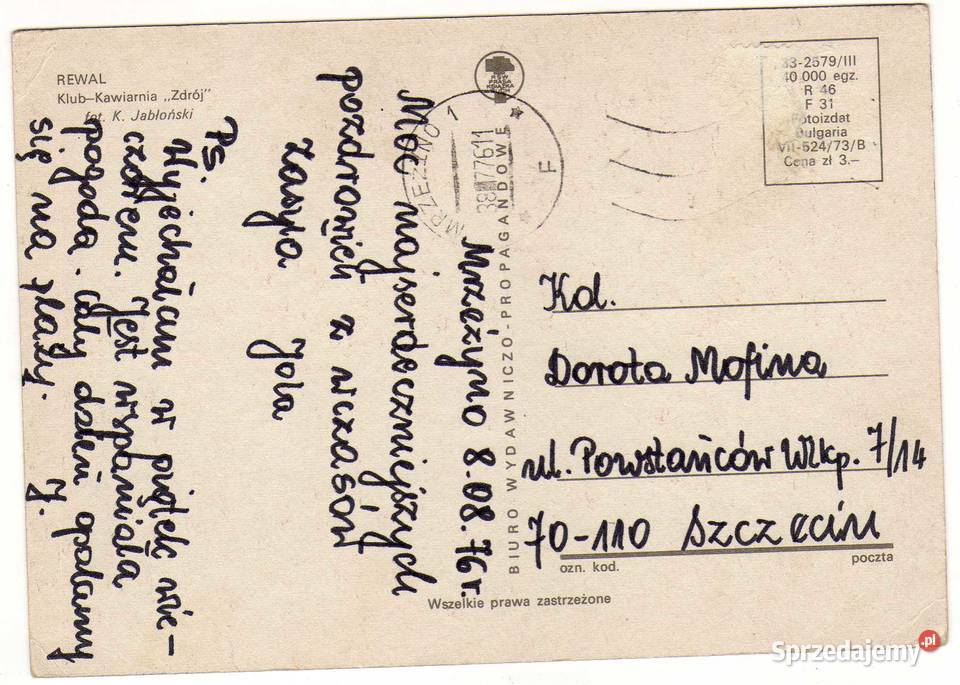 REWAL
Klub–Kawiarnia „Zdrój"
fot. K. Jabłoński
RSW
PRASA
KSIĄŻKA
RUCH
MRZEŻYNO 1
F
33-2579/III
40 000 egz.
R 46
F 31
Fotoizdat
Bulgaria
VII-524/73/B
Cena zł 3.–
Mrzeżyno 8.08.76r.
Moc najserdeczniejszych
pozdrowień z wczasów
zasyła
Jola
Ps.
Wyjechałam w piątek wie–
czorem. Jest wspaniała
pogoda. Cały dzień opalamy
się na plaży. J.
BIURO WYDAWNICZO-PROPAGANDOWE
Kol.
Dorota Mofina
ul. Powstańców Wlkp. 7/14
70-110 Szczecin
ozn. kod.
poczta
Wszelkie prawa zastrzeżone
Sprzedajemy.pl